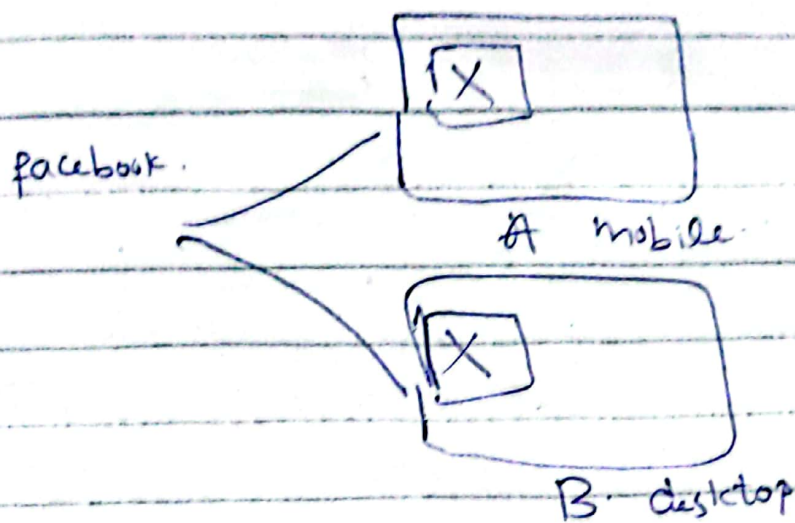 X
facebook.
A mobile
X
B. desktop